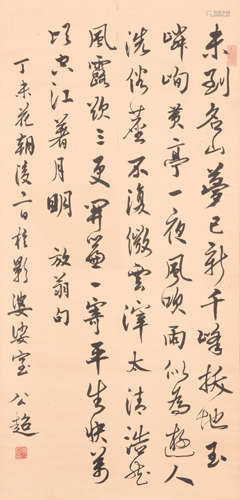 未到名山夢已新千峰拔地玉
嶙峋黄亭一夜風吹雨似為遊人
洗俗塵不復微雲滓太清浩然
風露欲三更開簾一寄平生快萬
頃空江著月明 放翁句
丁未花朝後二日於影婆娑室 公超